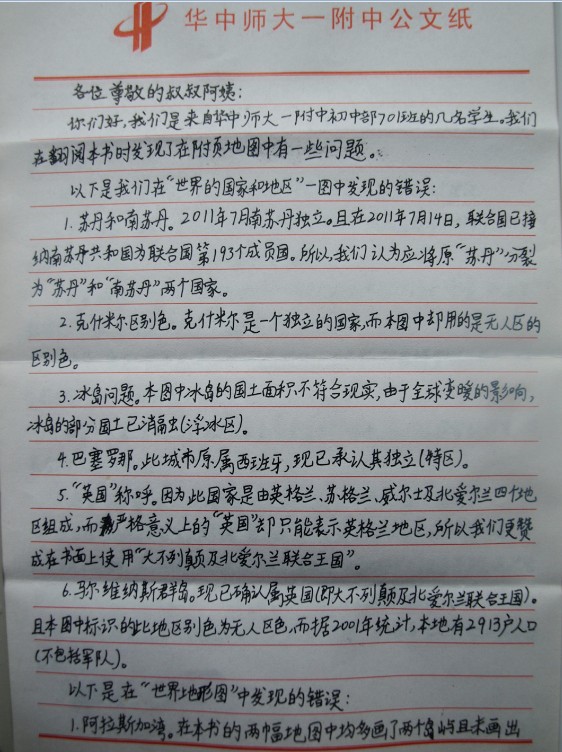 华中师大一附中公文纸
各位尊敬的叔叔阿姨:
你们好,我们是来自华中师大一附中初中部701班的几名学生。我们
在翻阅本书时发现了在附页地图中有一些问题。
以下是我们在“世界的国家和地区”一图中发现的错误:
1.苏丹和南苏丹。2011年7月南苏丹独立。且在2011年7月14日,联合国已接
纳南苏丹共和国为联合国第193个成员国。所以,我们认为应将原“苏丹”分裂
为“苏丹”和“南苏丹”两个国家。
2.克什米尔区别色。克什米尔是一个独立的国家,而本图中却用的是无人区的
区别色。
3.冰岛问题。本图中冰岛的国土面积不符合现实,由于全球变暖的影响,
冰岛的部分国土已消融(浮冰区)。
4.巴塞罗那。此城市原属西班牙,现已承认其独立(特区)。
5.“英国”称呼。因为此国家是由英格兰、苏格兰、威尔士及北爱尔兰四个地
区组成,而严格意义上的“英国”却只能表示英格兰地区,所以我们更赞
成在书面上使用“大不列颠及北爱尔兰联合王国”。
6.马尔维纳斯群岛。现已确认属英国(即大不列颠及北爱尔兰联合王国)。
且本图中标识的此地区别色为无人区色,而据2001年统计,本地有2913户人口
(不包括军队)。
以下是在“世界地形图”中发现的错误:
1.阿拉斯加湾。在本书的两幅地图中均多画了两个岛屿且未画出